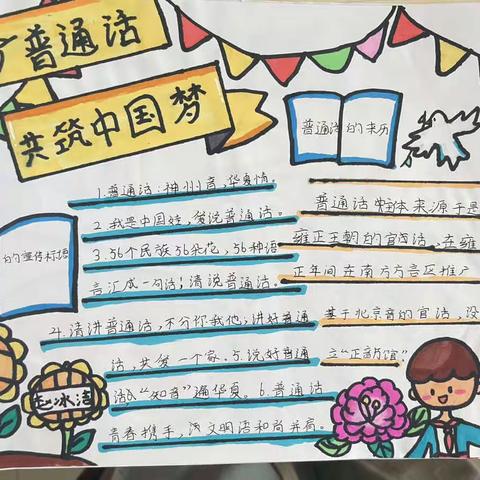 广普通话
共筑中国梦
普通话的来历
的宣传标语
1.普通话：神州音,华夏情。
2.我是中国娃，爱说普通话。
3.56个民族56朵花，56种语
言汇成一句话；请说普通话。
4.请讲普通话，不分你我他；讲好普通
话，共爱一个家.5.说好普通
话"知音"遍华夏。6.普通话
青春携手，文明语和尚并高。
普通话主体来源于是
雍正王朝的官话，在雍
正年间在南方方言区推广
基于北京音的官话，设
立"正音馆"
赵冰洁